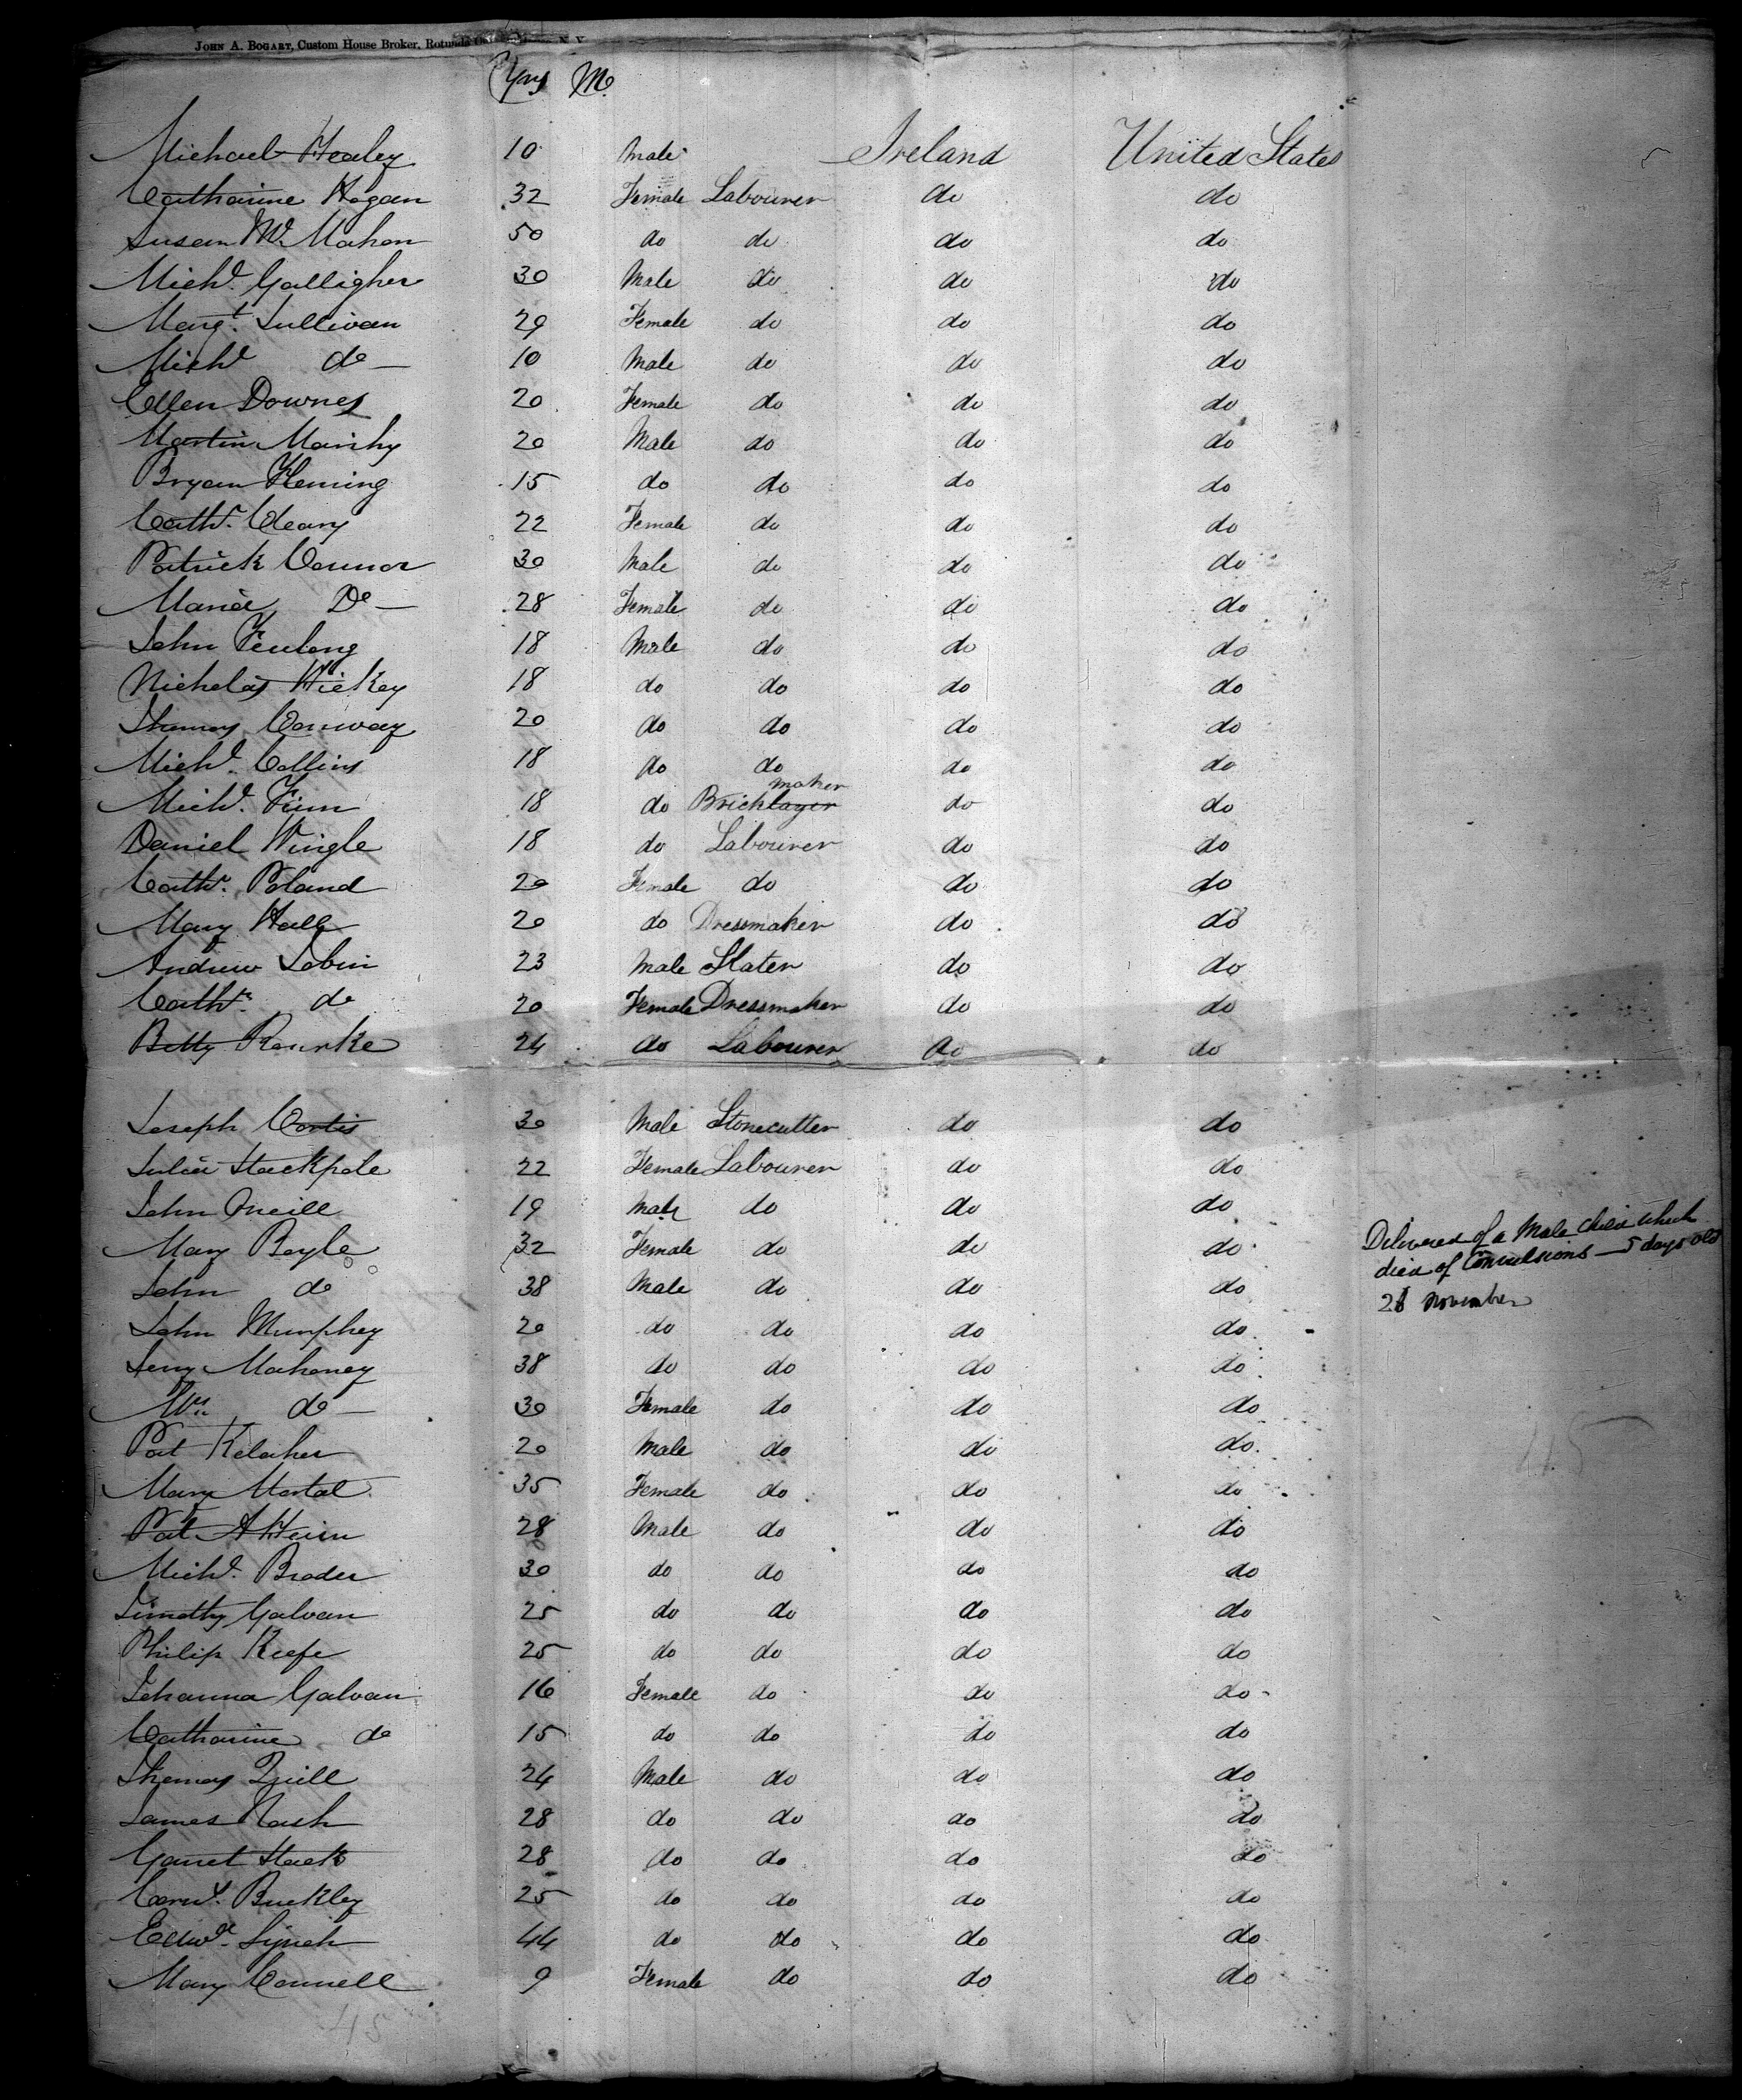 JOHN A. BOGART, Custom House Broker, Rotunda N. Y.
Yrs M.
Michael Healey 10 Male Ireland United States
Catharine Hogan 32 Female Labourer do do
Susan McMahon 50 do do do do
Michl. Galligher 30 Male do do do
Margt. Sullivan 29 Female do do do
Michl do 10 Male do do do
Ellen Downes 20 Female do do do
Martin Manihy 20 Male do do do
Bryan Fleming 15 do do do do
Cathr. Cleary 22 Female do do do
Patrick Connor 30 Male do do do
Maria Do 28 Female do do do
John Feulong 18 Male do do do
Nicholas Hickey 18 do do do do
Thomas Conway 20 do do do do
Michl. Collins 18 do do do do
maker
Michl. Finn 18 do Bricklayer do do
Daniel Wingle 18 do Labourer do do
Cathr. Poland 20 Female do do do
Mary Hall 20 do Dressmaker do do
Andrew Tobin 23 Male Slater do do
Cathr. do 20 Female Dressmaker do do
Betty Rourke 24 do Labourer do do
Joseph Cortis 30 Male Stonecutter do do
Julia Stackpole 22 Female Labourer do do
John Oneill 19 Male do do do
Mary Boyle 32 Female do do do Delivered of a Male Child which
died of Convulsions — 5 days old
John do 38 Male do do do
28 November
John Murphey 20 do do do do
Jerry Mahoney 38 do do do do
Mrs do 30 Female do do do
Pat Kelaher 20 Male do do do
Mary Martal 35 Female do do do
Pat AHern 28 Male do do do
Michl. Broder 30 do do do do
Timothy Galvan 25 do do do do
Philip Keefe 25 do do do do
Johanna Galvan 16 Female do do do
Catharine do 15 do do do do
Thomas Quill 24 Male do do do
James Nash 28 do do do do
Garret Stack 28 do do do do
Corns. Buckley 25 do do do do
Edwd. Lynch 44 do do do do
Mary Connell 9 Female do do do
45